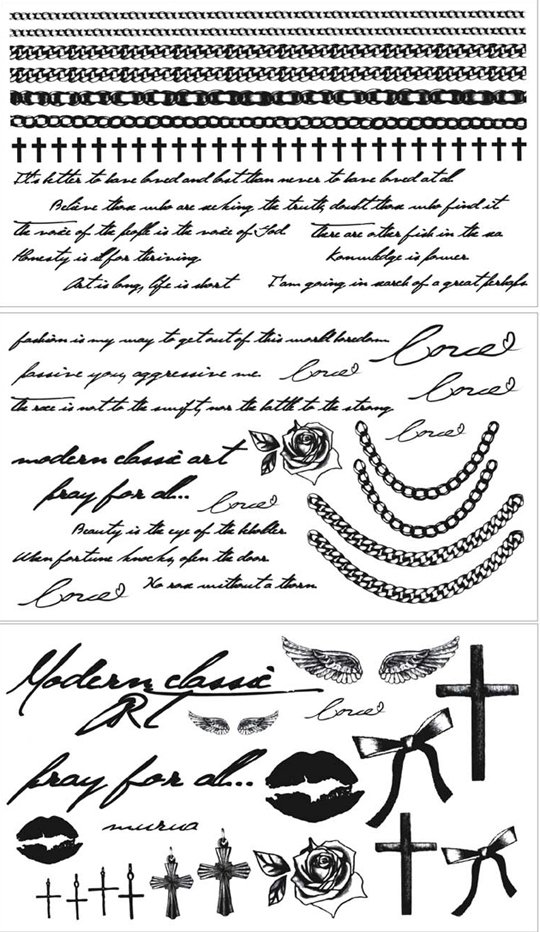 It's better to have loved and lost than never to have loved at all
Believe those who are seeking the truth, doubt those who find it
The voice of the people is the voice of God
There are other fish in the sea
Honesty is ill for thriving
Knowledge is power
Art is long, life is short
I'am going in search of a great perhaps
fashion is my way to get out of this world boredom
Love
passive you, aggressive me
Love
Love
The race is not to the swift, nor the battle to the strong
Love
modern classic art
pray for all...
Love
Beauty is the eye of the beholder
When fortune knocks, open the door
Love
No rose without a thorn
Modern classic
ART
Love
pray for all...